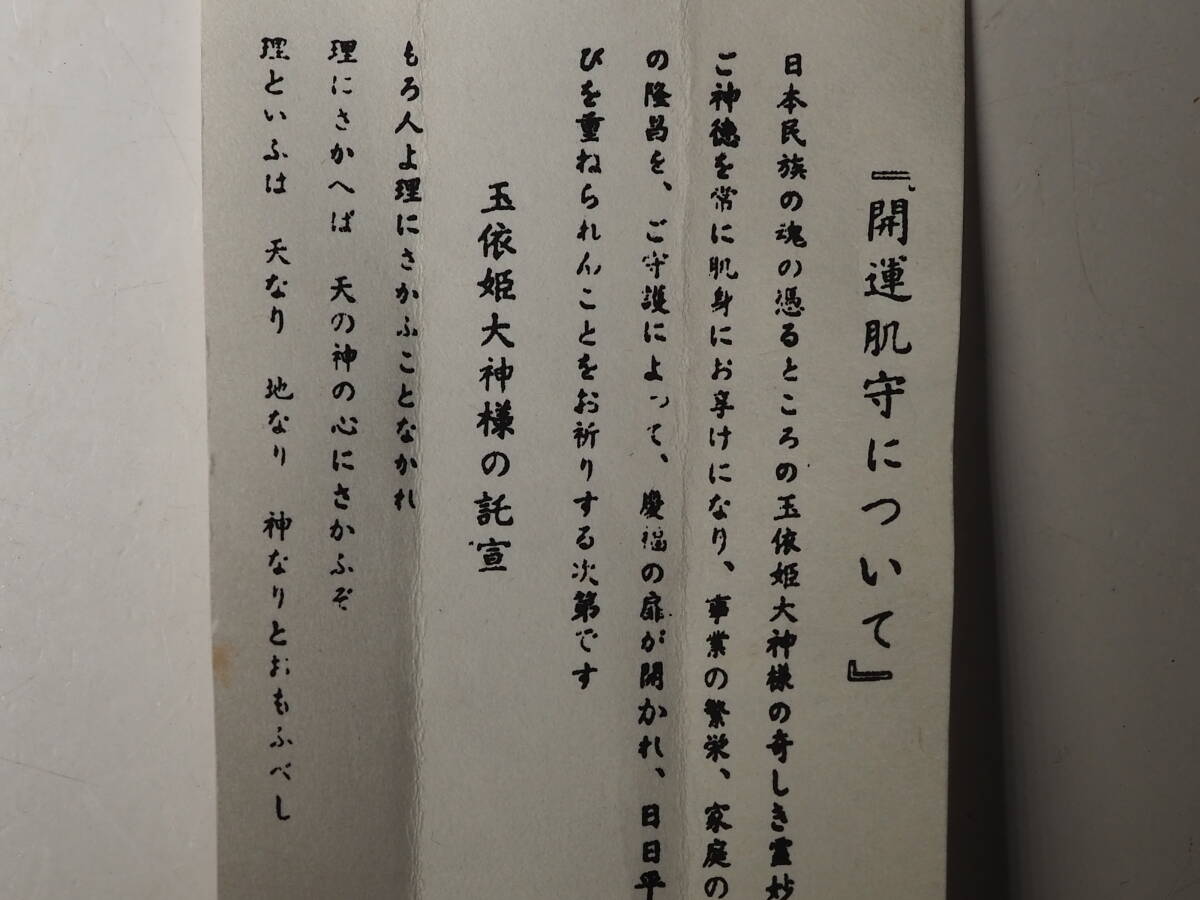 『開運肌守について』
日本民族の魂の憑るところの玉依姫大神様の奇しき霊妙
ご神徳を常に肌身にお享けになり、事業の繁栄、家庭の
の隆昌を、ご守護によって、慶福の扉が開かれ、日日平
びを重ねられんことをお祈りする次第です
玉依姫大神様の託宣
もろ人よ理にさかふことなかれ
理にさかへば 天の神の心にさかふぞ
理といふは 天なり 地なり 神なりとおもふべし